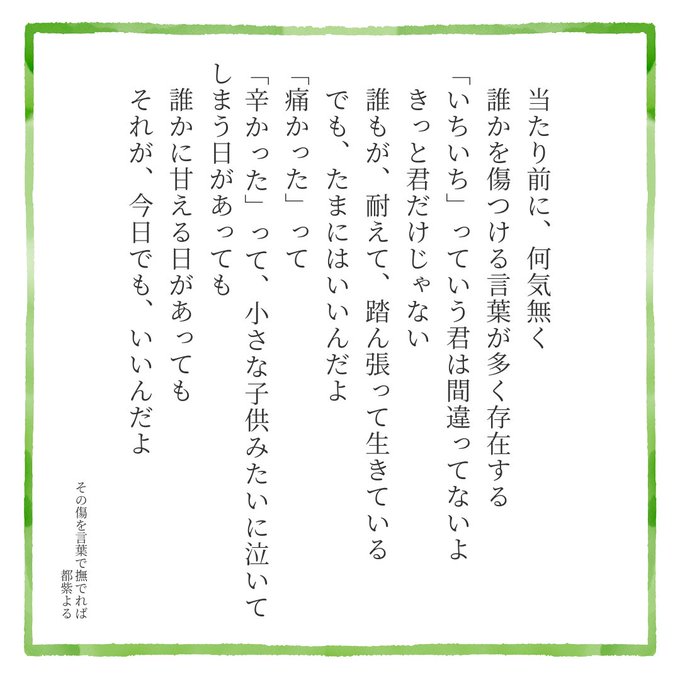 当たり前に、何気無く
誰かを傷つける言葉が多く存在する
「いちいち」っていう君は間違ってないよ
きっと君だけじゃない
誰もが、耐えて、踏ん張って生きている
でも、たまにはいいんだよ
「痛かった」って
「辛かった」って、小さな子供みたいに泣いて
しまう日があっても
誰かに甘える日があっても
それが、今日でも、いいんだよ
その傷を言葉で撫でれば
都紫よる